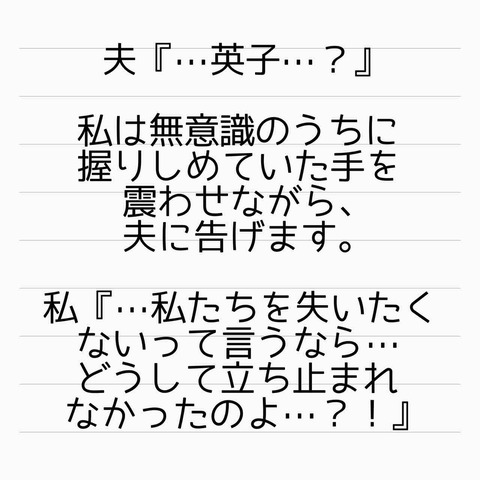 夫『…英子…？』
私は無意識のうちに
握りしめていた手を
震わせながら、
夫に告げます。
私『…私たちを失いたく
ないって言うなら…
どうして立ち止まれ
なかったのよ…？！』